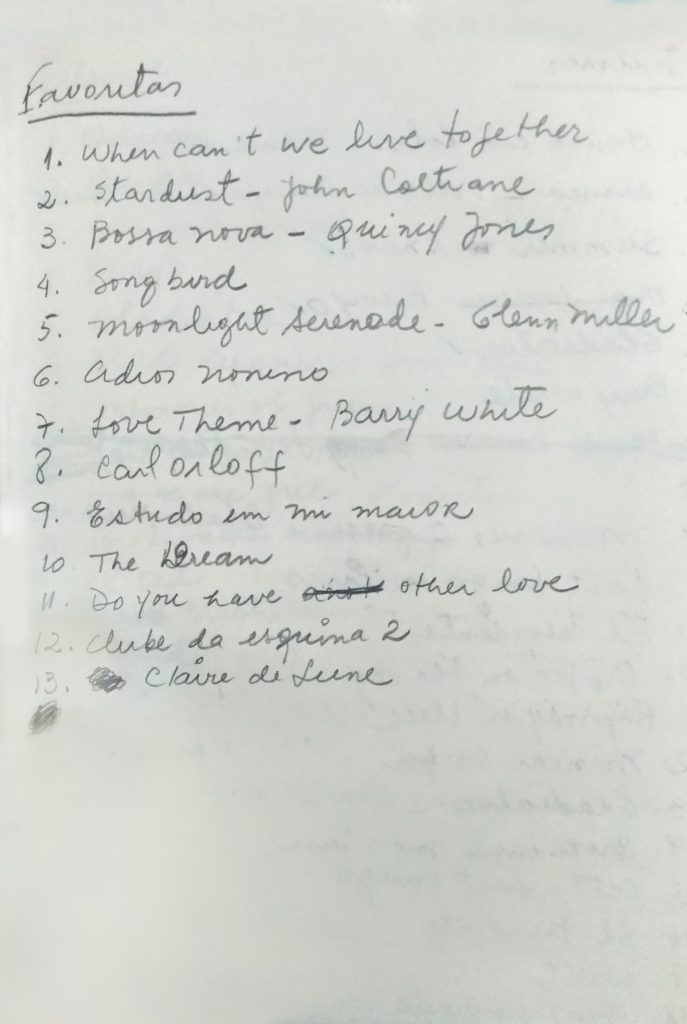 Favoritas
1. When can't we live together
2. Stardust - John Coltrane
3. Bossa nova - Quincy Jones
4. Song bird
5. Moonlight Serenade - Glenn Miller
6. Adios nonino
7. Love Theme - Barry White
8. Carl Orloff
9. Estudo em mi maior
10 The Dream
11. Do you have other love
12. Clube da esquina 2
13. Claire de Lune